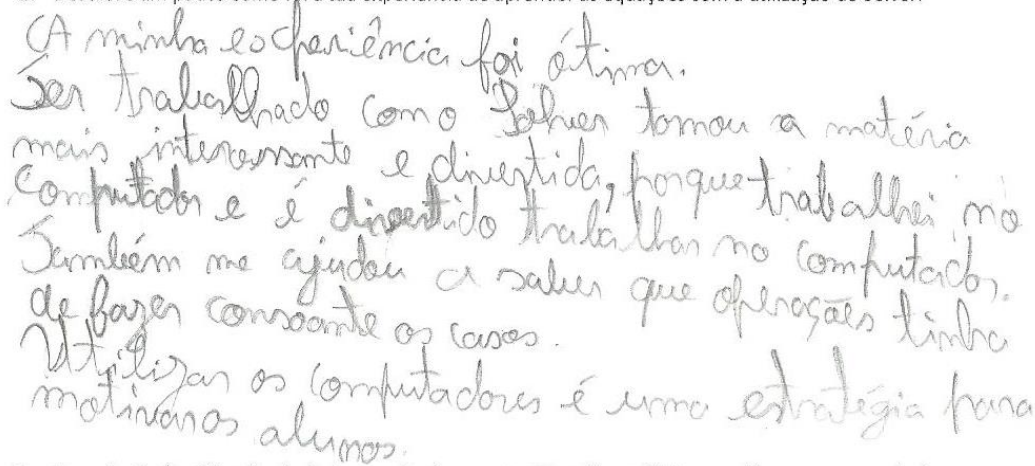 A minha experiência foi ótima.
Ser trabalhado com o Solver tornou a matéria
mais interessante e divertida, porque trabalhei no
computador e é divertido trabalhar no computador.
Também me ajudou a saber que operações tinha
de fazer consoante os casos.
Utilizar os computadores é uma estratégia para
motivar os alunos.